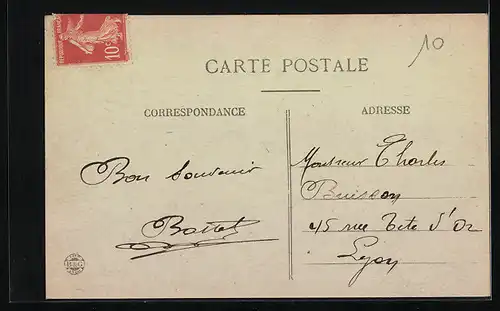 10
REPUBLIQUE FRANCAISE
10c
CARTE POSTALE
CORRESPONDANCE
ADRESSE
Bon souvenir
Monsieur Charles
Buisson
45 rue Tete d'Or
Lyon
B & G